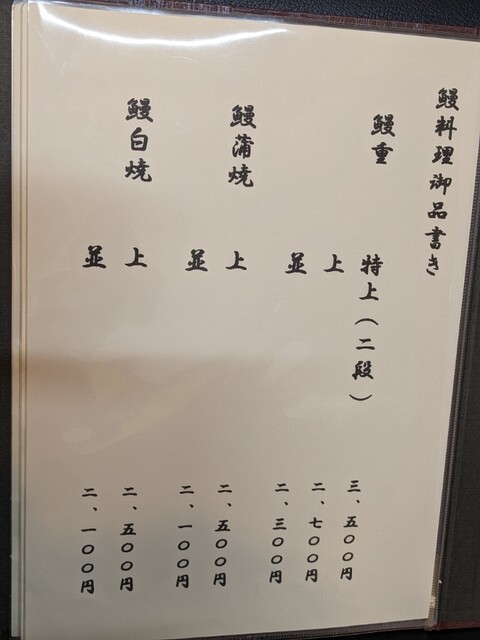 鰻料理御品書き
鰻重
特上（二段） 三、五〇〇円
上 二、七〇〇円
並 二、三〇〇円
鰻蒲焼
上 二、五〇〇円
並 二、一〇〇円
鰻白焼
上 二、五〇〇円
並 二、一〇〇円